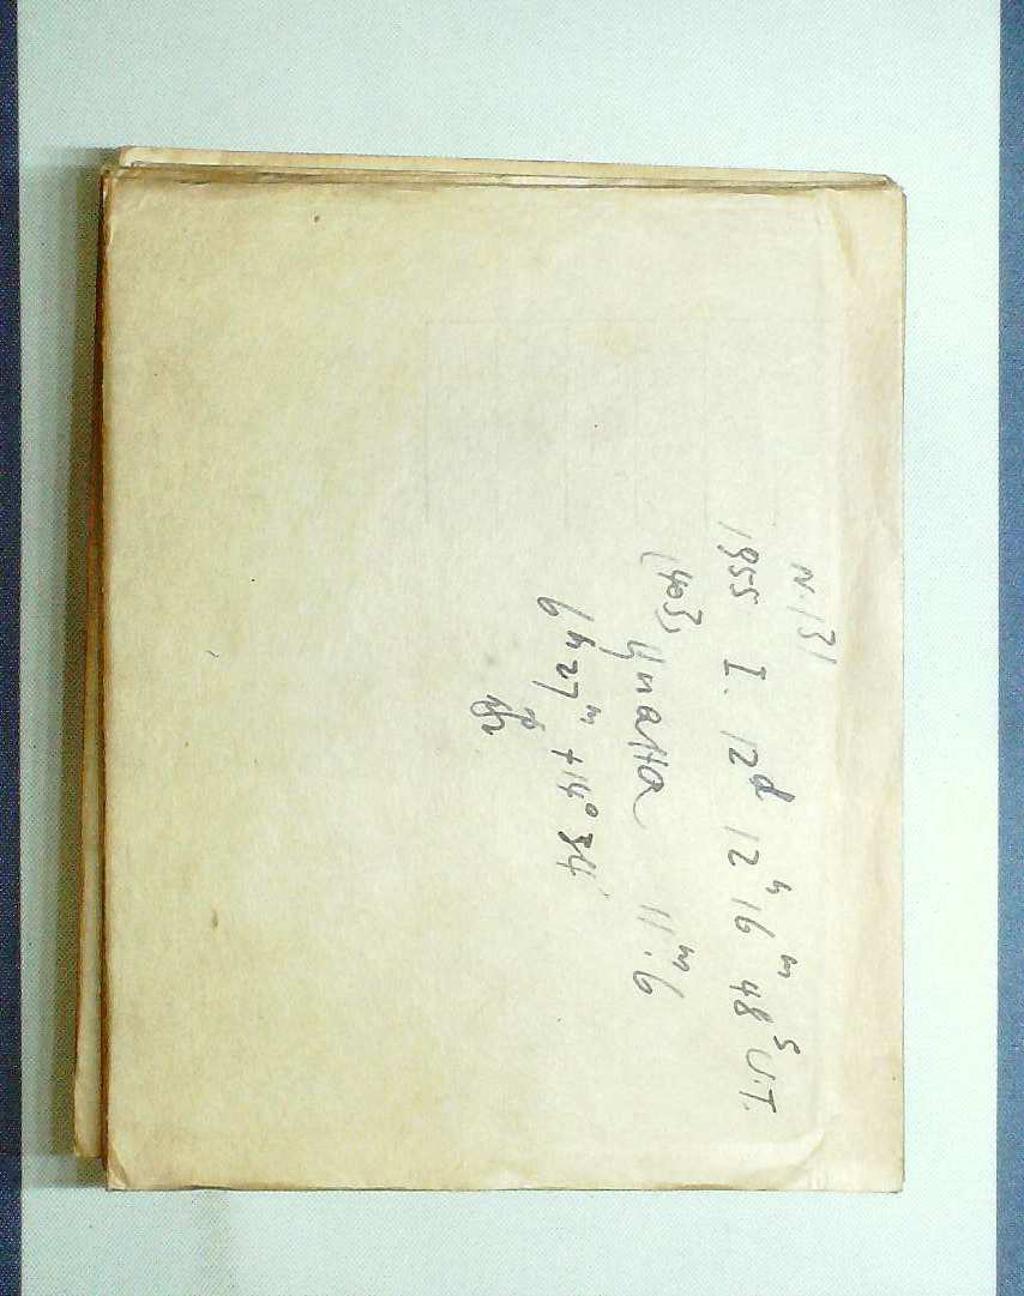 N. 131
1955 I. 12ᵈ 12ʰ 16ᵐ 48ˢ U.T.
(403) Циана 11ᵐ.6
6ʰ 27ᵐ +14° 34'